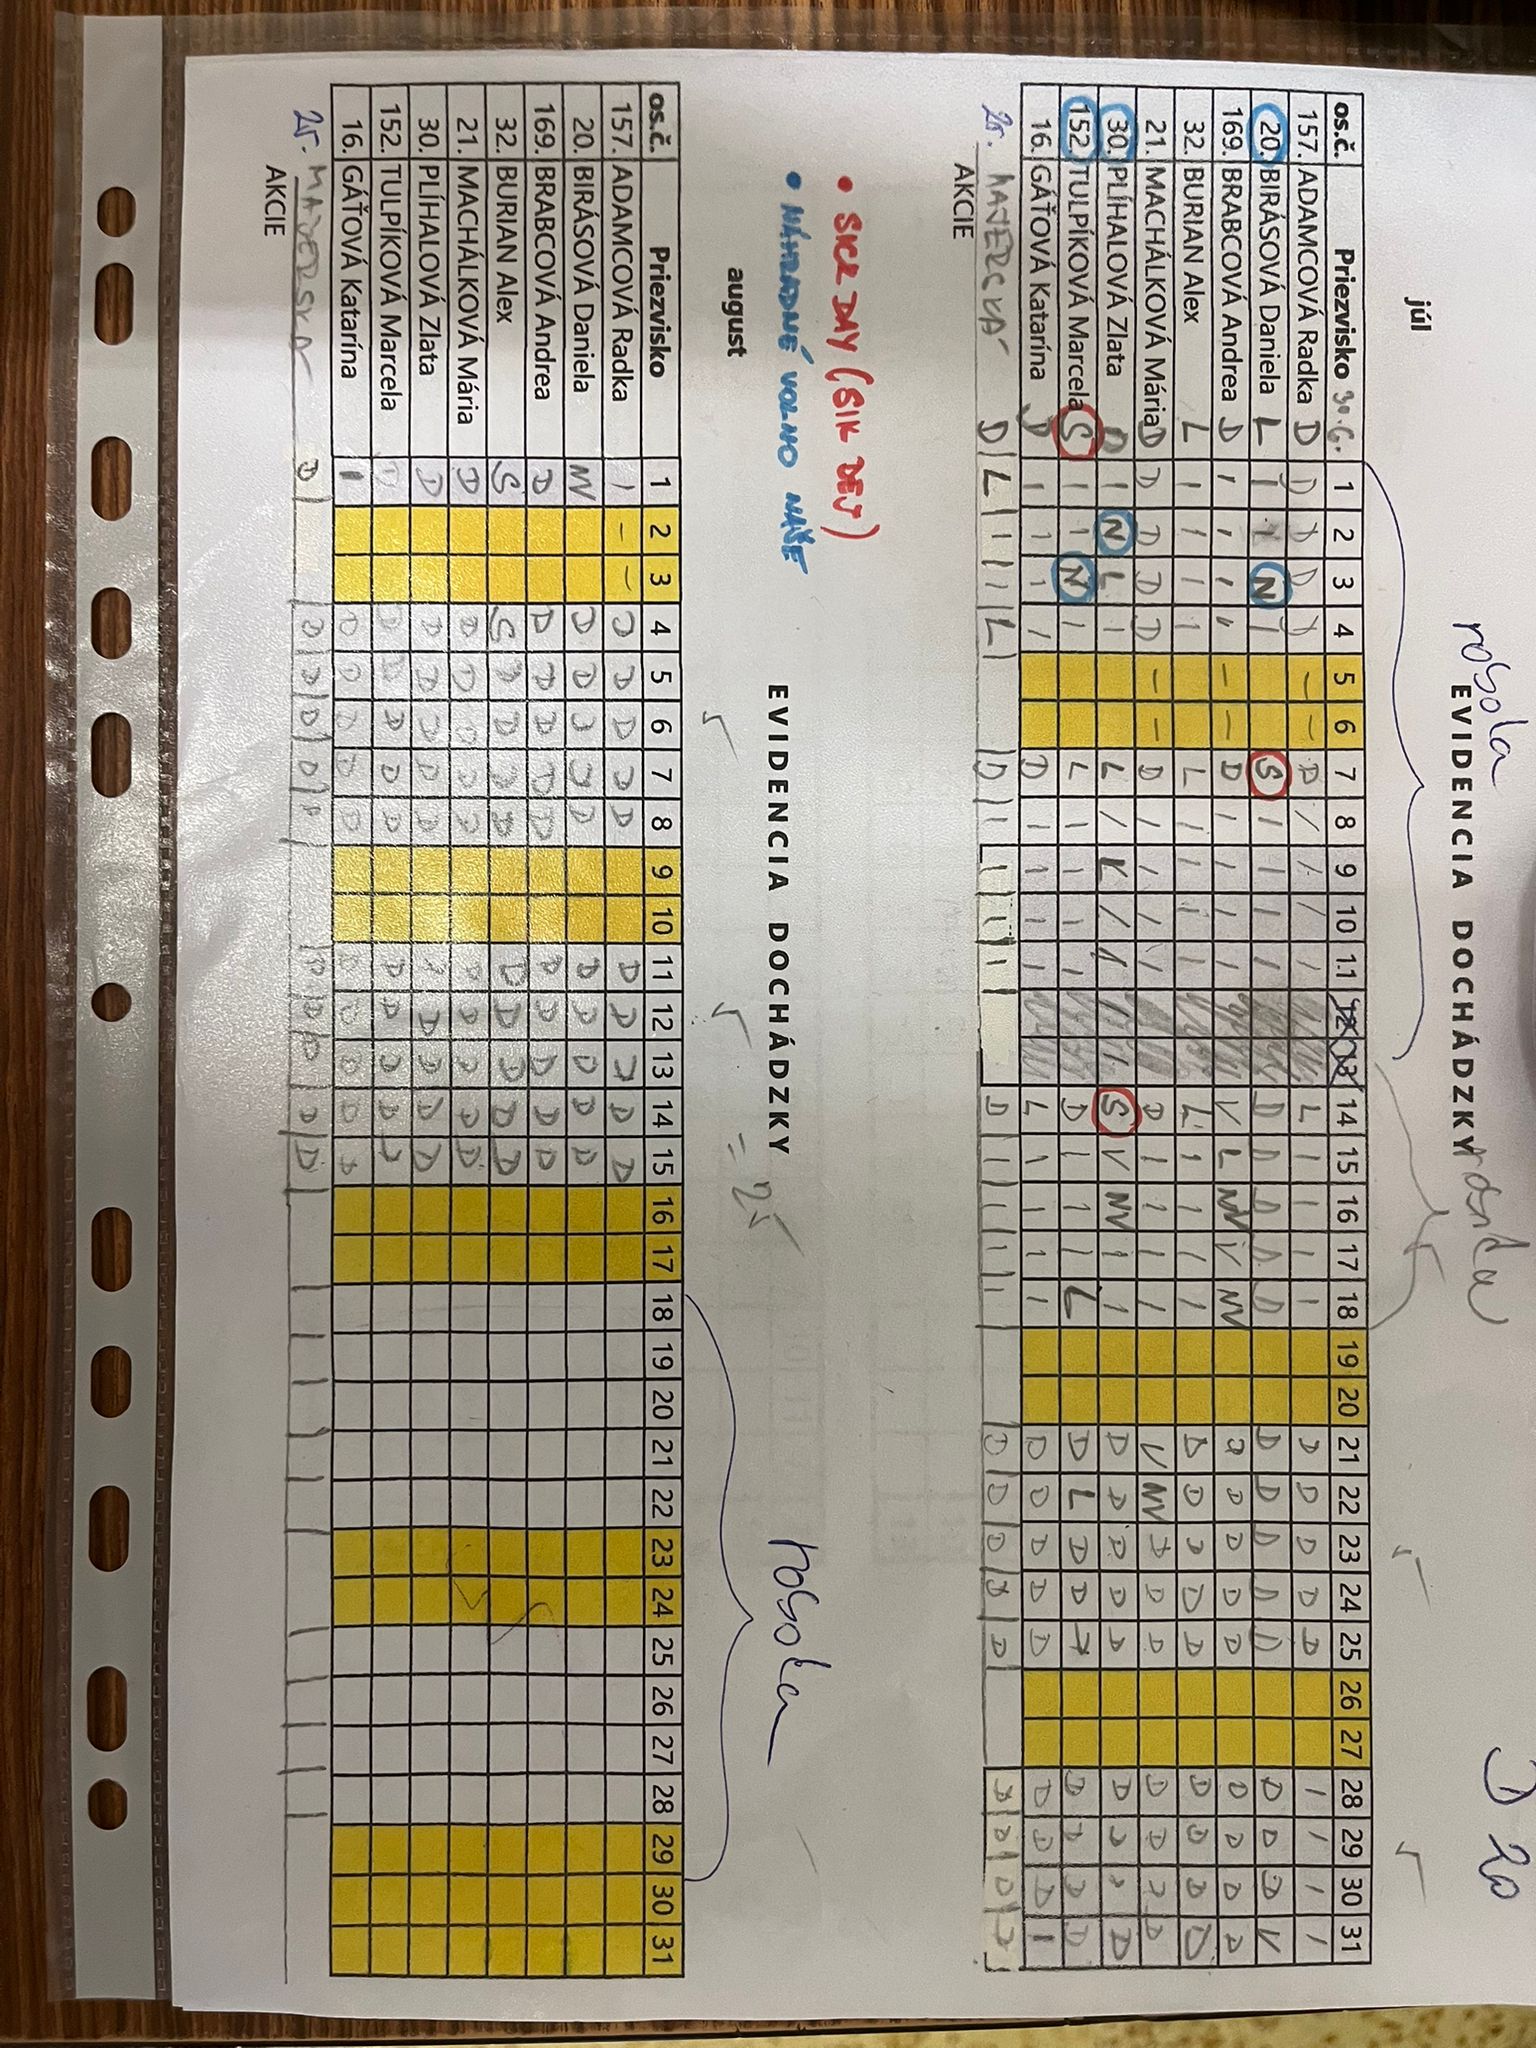 robota
robota
D 20
EVIDENCIA DOCHÁDZKY
júl
5 5 5
os.č. Priezvisko 30.6. 1 2 3 4 5 6 7 8 9 10 11 12 13 14 15 16 17 18 19 20 21 22 23 24 25 26 27 28 29 30 31
157. ADAMCOVÁ Radka D D D D D — — D / / / / L I I I I D D D D D I I I I
20. BIRÁSOVÁ Daniela L I I N I S I I I I D D D D D D D D D D D D D V
169. BRABCOVÁ Andrea D I I I I — — D I I I I V L NV V NV D D D D D D D D
32. BURIAN Alex L I I I I L I I I I L I I I I D D D D D D D D D
21. MACHÁLKOVÁ Mária D D D D D — — D I I I I D I I I I V NV D D D D D D D
30. PLÍHALOVÁ Zlata D I N L I L / L / I I I S V NV I I D D D D D D D D
152. TULPÍKOVÁ Marcela S I I N I L I I I I D I I I L D L D D D D D D
16. GÁŤOVÁ Katarína D I I I I D I I I I L I I I I D D D D D D D D I
25. MAJERSKÁ D L I I L D I I I I D I I I I D D D D D D D D D
AKCIE
• SICK DAY (SIK DEJ)
• NÁHRADNÉ VOLNO NAŠE
robota
EVIDENCIA DOCHÁDZKY
= 25
august
5 5
os.č. Priezvisko 1 2 3 4 5 6 7 8 9 10 11 12 13 14 15 16 17 18 19 20 21 22 23 24 25 26 27 28 29 30 31
157. ADAMCOVÁ Radka I — — D D D D D D D D D D
20. BIRÁSOVÁ Daniela NV D D D D D D D D D D
169. BRABCOVÁ Andrea D D D D D D D D D D D
32. BURIAN Alex S S D D D D D D D D D
21. MACHÁLKOVÁ Mária D D D D D D D D D D
30. PLÍHALOVÁ Zlata D D D D D D D D D D
152. TULPÍKOVÁ Marcela D D D D D D D D D D D
16. GÁŤOVÁ Katarína I D D D D D D D D D D
25. MAJERSKÁ D D D D D D D D D D D
AKCIE